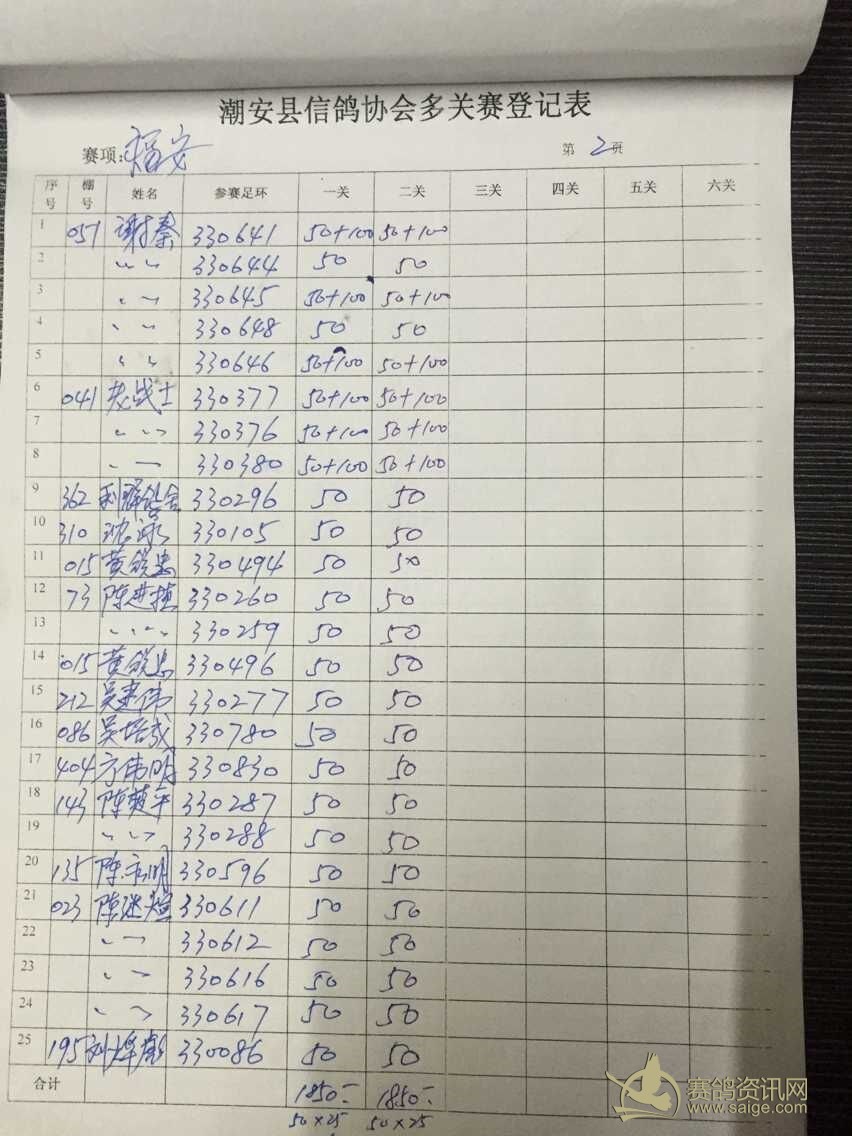 潮安县信鸽协会多关赛登记表
赛项: 福安 第 2 页
序号 棚号 姓名 参赛足环 一关 二关 三关 四关 五关 六关
1 051 谢秦 330641 50+100 50+100
2 〃 〃 330644 50 50
3 〃 〃 330645 50+100 50+100
4 〃 〃 330648 50 50
5 〃 〃 330646 50+100 50+100
6 041 老战士 330377 50+100 50+100
7 〃 〃 330376 50+100 50+100
8 〃 〃 330380 50+100 50+100
9 362 利群鸽舍 330296 50 50
10 310 330105 50 50
11 015 黄锐忠 330494 50 50
12 73 陈进雄 330260 50 50
13 〃 〃 330259 50 50
14 015 黄锐忠 330496 50 50
15 212 吴建伟 330277 50 50
16 086 吴培武 330780 50 50
17 404 方伟明 330830 50 50
18 143 陈楚平 330287 50 50
19 〃 〃 330288 50 50
20 135 陈永明 330596 50 50
21 023 330611 50 50
22 〃 〃 330612 50 50
23 〃 〃 330616 50 50
24 〃 〃 330617 50 50
25 195 330086 50 50
合计 1850- 1850-
50×25 50×25
赛鸽资讯网
www.saige.com